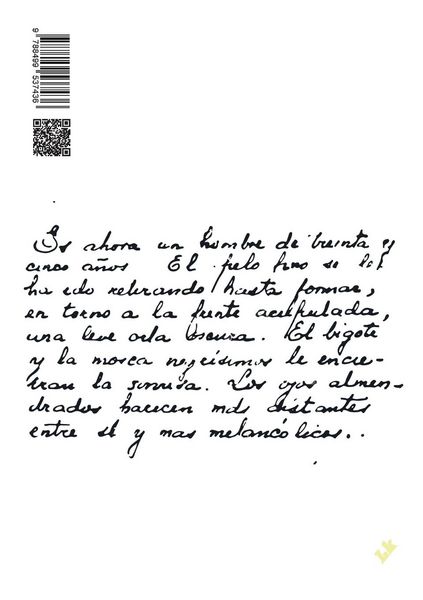 9 788499 537436
Es ahora un hombre de treinta y
cinco años El pelo fino se le
ha ido retirando hasta formar,
en torno a la frente acupulada,
una leve orla oscura. El bigote
y la mosca negrísimos le encie-
rran la sonrisa. Los ojos almen-
drados parecen más distantes
entre sí y mas melancólicos..